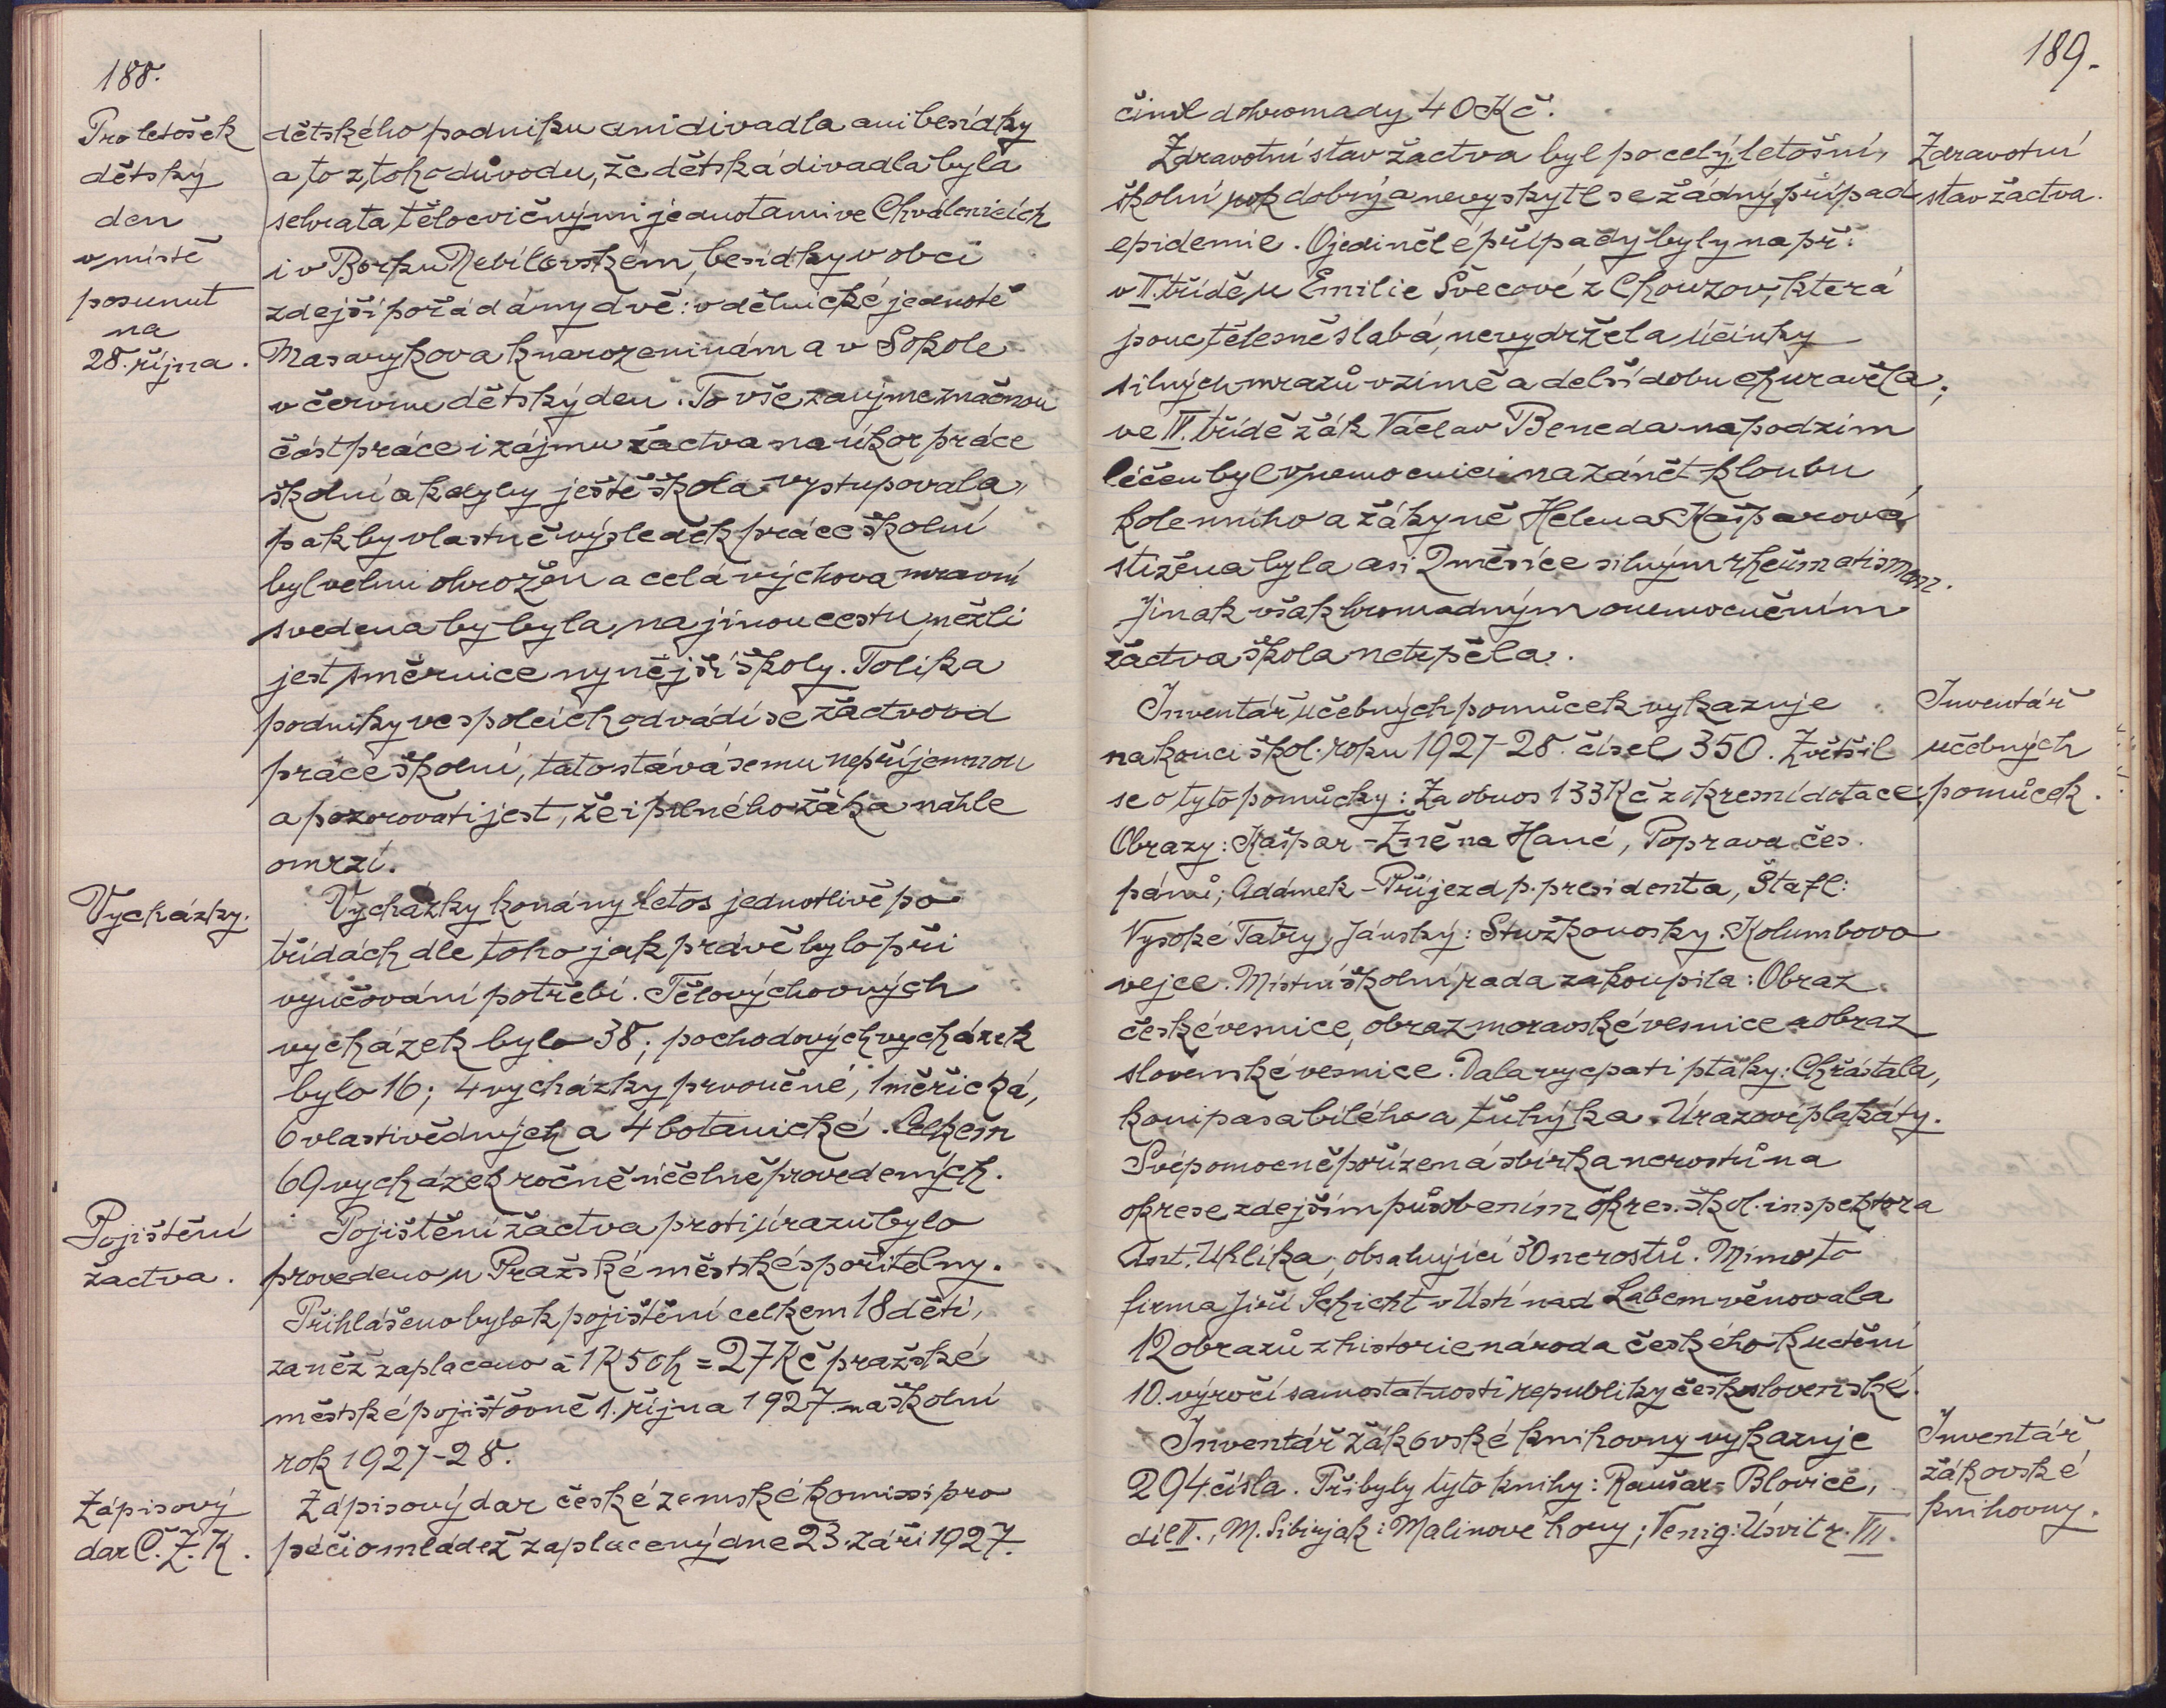 188.
Pro letošek
dětský
den
v místě
posunut
na
28. října.
dětského podniku ani divadla ani besídky
a to z toho důvodu, že dětská divadla byla
sehrata tělocvičnými jednotami ve Chválenicích
i v Borku Nebílovském, besídky v obci
zdejší pořádány dvě: v dělnické jednotě
Masarykova k narozeninám a v Sokole
v červnu dětský den. To vše zaujme značnou
část práce i zájmu žactva na úkor práce
školní a kdyby ještě škola vystupovala,
pak by vlastně výsledek práce školní
byl velmi ohrožen a celá výchova mravní
svedena by byla na jinou cestu, nežli
jest směrnice nynější školy. Tolika
podniky ve spolcích odvádí se žactvo od
práce školní, tato stává se mu nepříjemnou
a pozorovati jest, že i pilného žáka náhle
omrzí.
Vycházky.
Vycházky konány letos jednotlivě po
třídách dle toho jak právě bylo při
vyučování potřebí. Tělovýchovných
vycházek bylo 38; pochodových vycházek
bylo 16; 4 vycházky prvoučné, 1 měřická,
6 vlastivědných a 4 botanické. Celkem
69 vycházek ročně účelně provedených.
Pojištění
žactva.
Pojištění žactva proti úrazu bylo
provedeno u Pražské městské spořitelny.
Přihlášeno bylo k pojištění celkem 18 dětí,
za něž zaplaceno á 1K50h = 27Kč pražské
městské pojišťovně 1. října 1927 na školní
rok 1927-28.
Zápisový
dar Č.Z.K.
Zápisový dar české zemské komissi pro
péči o mládež zaplacený dne 23. září 1927
189.
činil dohromady 40Kč.
Zdravotní
stav žactva.
Zdravotní stav žactva byl po celý letošní
školní rok dobrý a nevyskytl se žádný případ
epidemie. Ojedinělé případy byly na př.
v II. třídě u Emilie Švecové z Chouzov, která
jsouc tělesně slabá, nevydržela účinky
silných mrazů v zimě a delší dobu churavěla;
ve IV. třídě žák Václav Beneda na podzim
léčen byl v nemocnici na zánět kloubu
kolenního a žákyně Helena Kašparová
stižena byla asi 2 měsíce silným rheumatismem.
Jinak však hromadným onemocněním
žactva škola netrpěla.
Inventář
učebných
pomůcek.
Inventář učebných pomůcek vykazuje
na konci škol. roku 1927-28. čísel 350. Zvětšil
se o tyto pomůcky: Za obnos 133Kč z okresní dotace
Obrazy: Kašpar - Žně na Hané, Poprava čes.
pánů; Adámek - Příjezd p. presidenta, Štafl:
Vysoké Tatry, Jánský: Stužkonosky. Kolumbovo
vejce. Místní školní rada zakoupila: Obraz
české vesnice, obraz moravské vesnice a obraz
slovenské vesnice. Dala vycpati ptáky: Chřástala,
konipasa bílého a ťuhýka. Úrazové plakáty.
Svépomocně pořízená sbírka nerostů na
okrese zdejším působením okres. škol. inspektora
Ant. Uhlíka, obsahující 30 nerostů. Mimo to
firma Jiří Schicht v Ústí nad Labem věnovala
12 obrazů z historie národa českého k uctění
10. výročí samostatnosti republiky československé.
Inventář
žákovské
knihovny.
Inventář žákovské knihovny vykazuje
294 čísla. Přibyly tyto knihy: Raušar - Blovice,
díl II., M. Sibirjak: Malinové hory; Venig: Úsvit r. VII.